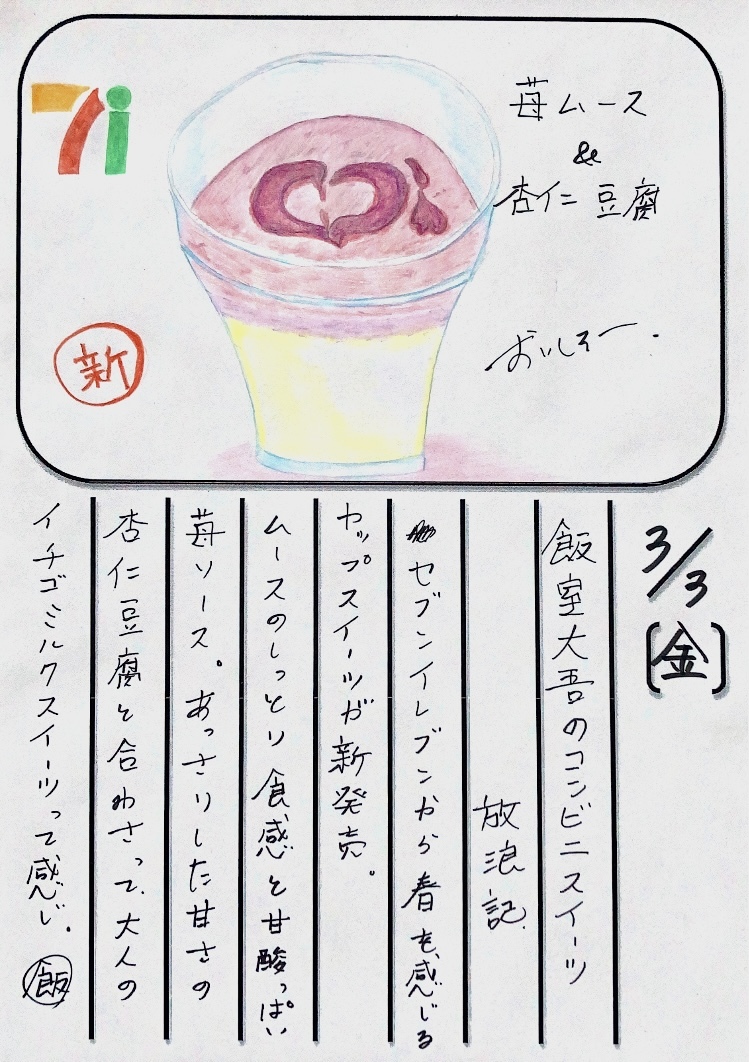 苺ムース
&
杏仁豆腐
おいしそー.
新
3/3
(金)
飯室大吾のコンビニスイーツ
放浪記.
セブンイレブンから春を感じる
カップスイーツが新発売。
ムースのしっとり食感と甘酸っぱい
苺ソース。あっさりした甘さの
杏仁豆腐と合わさって、大人の
イチゴミルクスイーツって感じ。飯